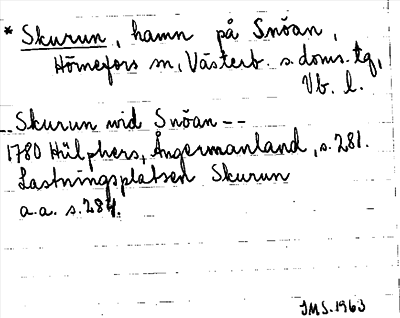 * Skurun, hamn på Snöan,
Hörnefors sn, Västerb. s. doms. tg,
Vb. l.
-- Skurun wid Snöan --
1780 Hülphers, Ångermanland, s. 281.
Lastningsplatsen Skurun
a.a. s. 284.
IMS. 1963